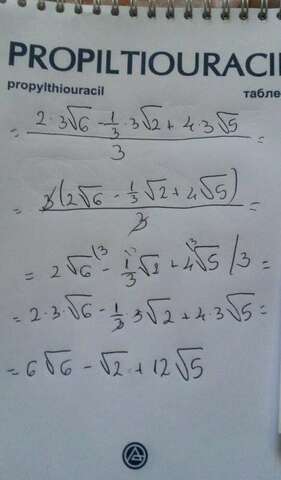 PROPILTIOURACI
propylthiouracil табле
= (2·3√6 - 1/3·3√2 + 4·3√5)/3 =
= 3(2√6 - 1/3√2 + 4√5)/3 =
= 2√6 ⁽³ - 1/3√2 + 4√5 ⁽³ /3 =
= 2·3·√6 - 1/3 3√2 + 4·3√5 =
= 6√6 - √2 + 12√5